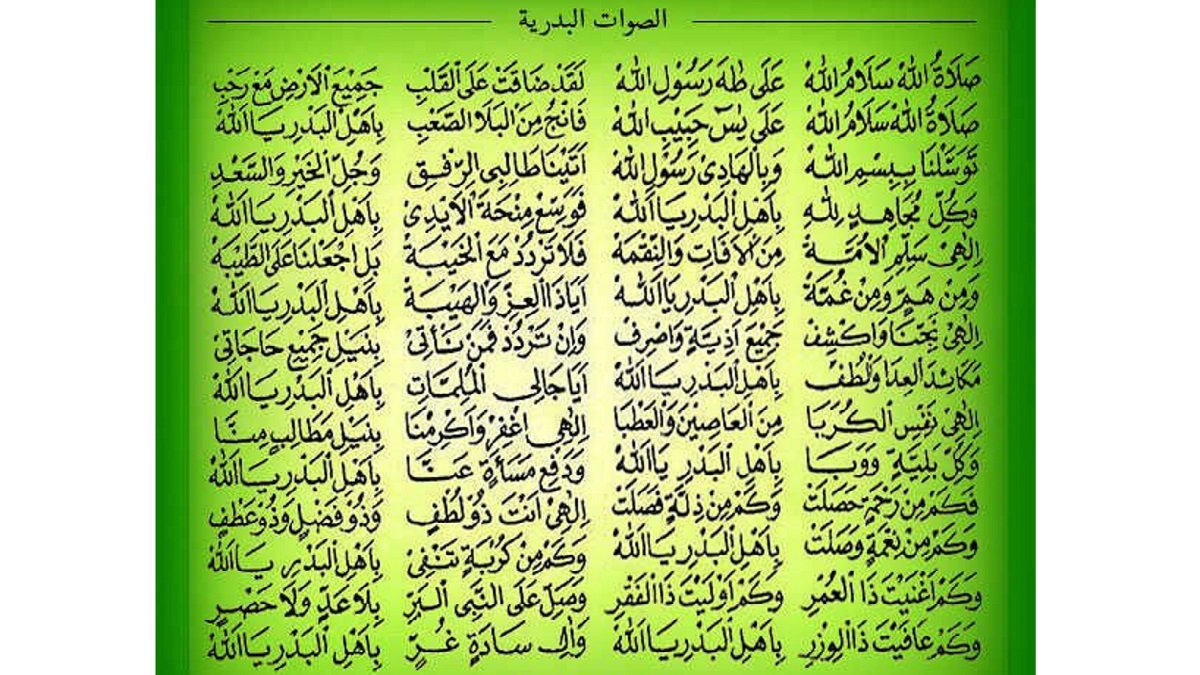 الصوات البدرية
صَلَاةُ اللهْ سَلَامُ اللهْ عَلَى طٰهَ رَسُوْلِ اللهْ
صَلَاةُ اللهْ سَلَامُ اللهْ عَلَى يٰسٓ حَبِيْبِ اللهْ
تَوَسَّلْنَا بِبِسْمِ اللهْ وَبِالْهَادِى رَسُوْلِ اللهْ
وَكُلِّ مُجَاهِدٍ لِلّٰهِ بِاَهْلِ الْبَدْرِ يَا اَللهْ
اِلٰهِى سَلِّمِ الْاُمَّةْ مِنَ الْاٰفَاتِ وَالنِّقْمَةْ
وَمِنْ هَمٍّ وَمِنْ غُمَّةْ بِاَهْلِ الْبَدْرِ يَا اَللهْ
اِلٰهِى نَجِّنَا وَاكْشِفْ جَمِيْعَ اَذِيَّةٍ وَاصْرِفْ
مَكَائِدَ الْعِدَا وَلْطُفْ بِاَهْلِ الْبَدْرِ يَا اَللهْ
اِلٰهِى نَفِّسِ الْكُرَبَا مِنَ الْعَاصِيْنَ وَالْعَطْبَا
وَكُلِّ بَلِيَّةٍ وَوَبَا بِاَهْلِ الْبَدْرِ يَا اَللهْ
فَكَمْ مِنْ رَحْمَةٍ حَصَلَتْ وَكَمْ مِنْ ذِلَّةٍ فَصَلَتْ
وَكَمْ مِنْ نِعْمَةٍ وَصَلَتْ بِاَهْلِ الْبَدْرِ يَا اَللهْ
وَكَمْ اَغْنَيْتَ ذَا الْعُمْرِ وَكَمْ اَوْلَيْتَ ذَا الْفَقْرِ
وَكَمْ عَافَيْتَ ذَا الْوِزْرِ بِاَهْلِ الْبَدْرِ يَا اَللهْ
لَقَدْ ضَاقَتْ عَلَى الْقَلْبِ جَمِيْعَ الْاَرْضِ مَعْ رَحْبِ
فَانْجُ مِنَ الْبَلَا الصَّعْبِ بِاَهْلِ الْبَدْرِ يَا اَللهْ
اَتَيْنَا طَالِبِى الرِّفْقِ وَجُلِّ الْخَيْرِ وَالسَّعْدِ
فَوَسِّعْ مِنْحَةَ الْاَيْدِىْ بِاَهْلِ الْبَدْرِ يَا اَللهْ
فَلَا تَرْدُدْ مَعَ الْخَيْبَةْ بَلِ اجْعَلْنَا عَلَى الطَّيْبَةْ
اَيَا ذَا الْعِزِّ وَالْهَيْبَةْ بِاَهْلِ الْبَدْرِ يَا اَللهْ
وَاِنْ تَرْدُدْ فَمَنْ نَأْتِىْ بِنَيْلِ جَمِيْعِ حَاجَاتِىْ
اَيَا جَالِى الْمُلِمَّاتِ بِاَهْلِ الْبَدْرِ يَا اَللهْ
اِلٰهِى اغْفِرْ وَاَكْرِمْنَا بِنَيْلِ مَطَالِبٍ مِنَّا
وَدَفْعِ مَسَأَةٍ عَنَّا بِاَهْلِ الْبَدْرِ يَا اَللهْ
اِلٰهِىْ اَنْتَ ذُوْ لُطْفٍ وَذُوْ فَضْلٍ وَذُوْ عَطْفٍ
وَكَمْ مِنْ كُرْبَةٍ تَنْفِىْ بِاَهْلِ الْبَدْرِ يَا اَللهْ
وَصَلِّ عَلَى النَّبِى الْبَرِّ بِلَا عَدٍّ وَلَا حَصْرٍ
وَاٰلِ سَادَةٍ غُرٍّ بِاَهْلِ الْبَدْرِ يَا اَللهْ